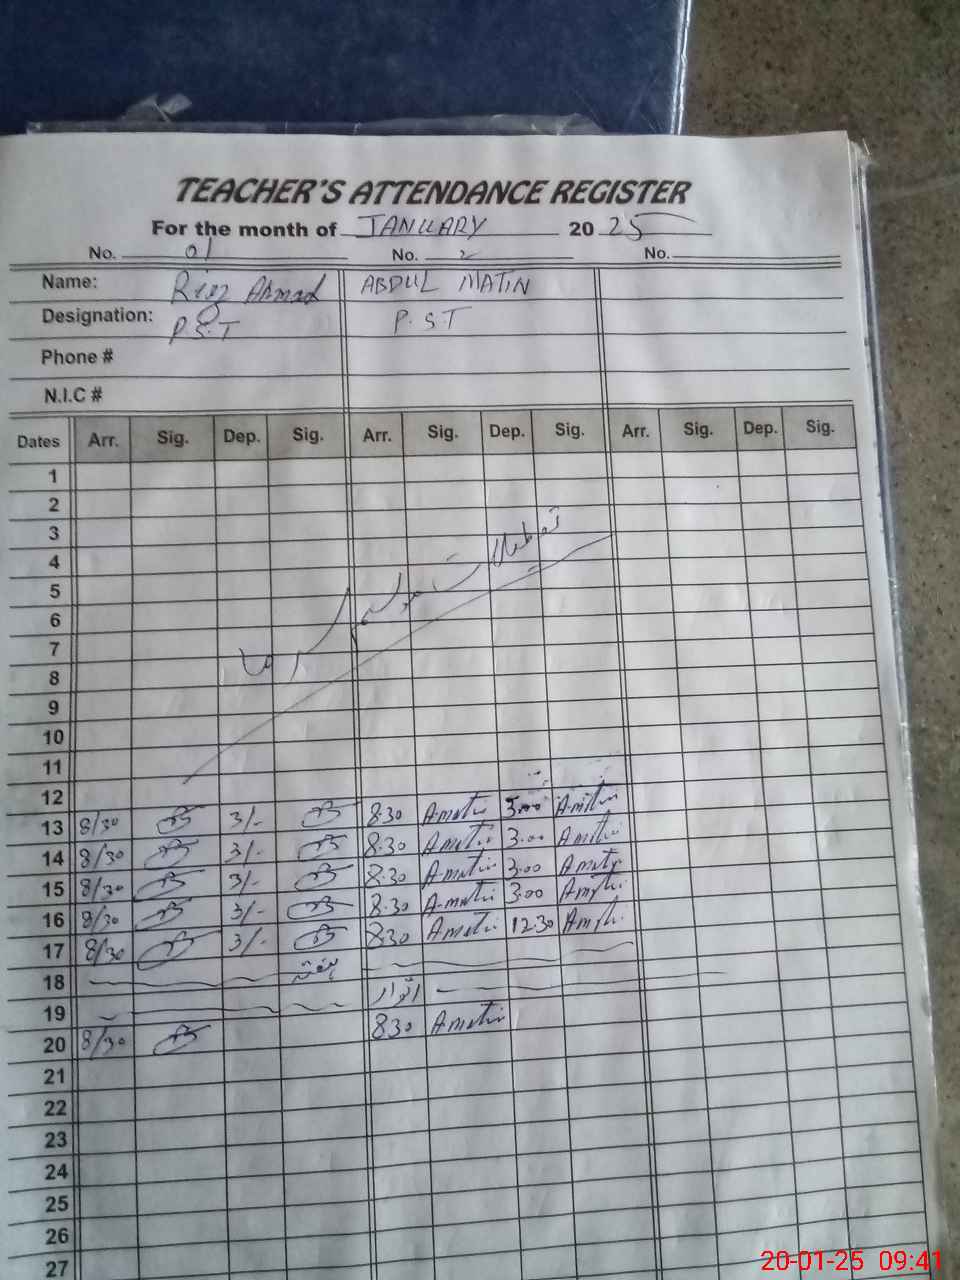 TEACHER'S ATTENDANCE REGISTER
For the month of JANUARY 2025
No. 01 No. 2 No.
Name: Riaz Ahmad ABDUL MATIN
Designation: P.S.T P.S.T
Phone #
N.I.C #
Dates Arr. Sig. Dep. Sig. Arr. Sig. Dep. Sig. Arr. Sig. Dep. Sig.
1
2
3
تعطیلات موسم سرما
4
5
6
7
8
9
10
11
12
13 8/30 3/- 8.30 Amatin 3.00 Amatin
14 8/30 3/- 8.30 Amatin 3.00 Amatin
15 8/30 3/- 8.30 Amatin 3.00 Amatin
16 8/30 3/- 8.30 Amatin 3.00 Amatin
17 8/30 3/- 8.30 Amatin 12.30 Amatin
18 ہفتہ
19 اتوار
20 8/30 8.30 Amatin
21
22
23
24
25
26
27
20-01-25 09:41